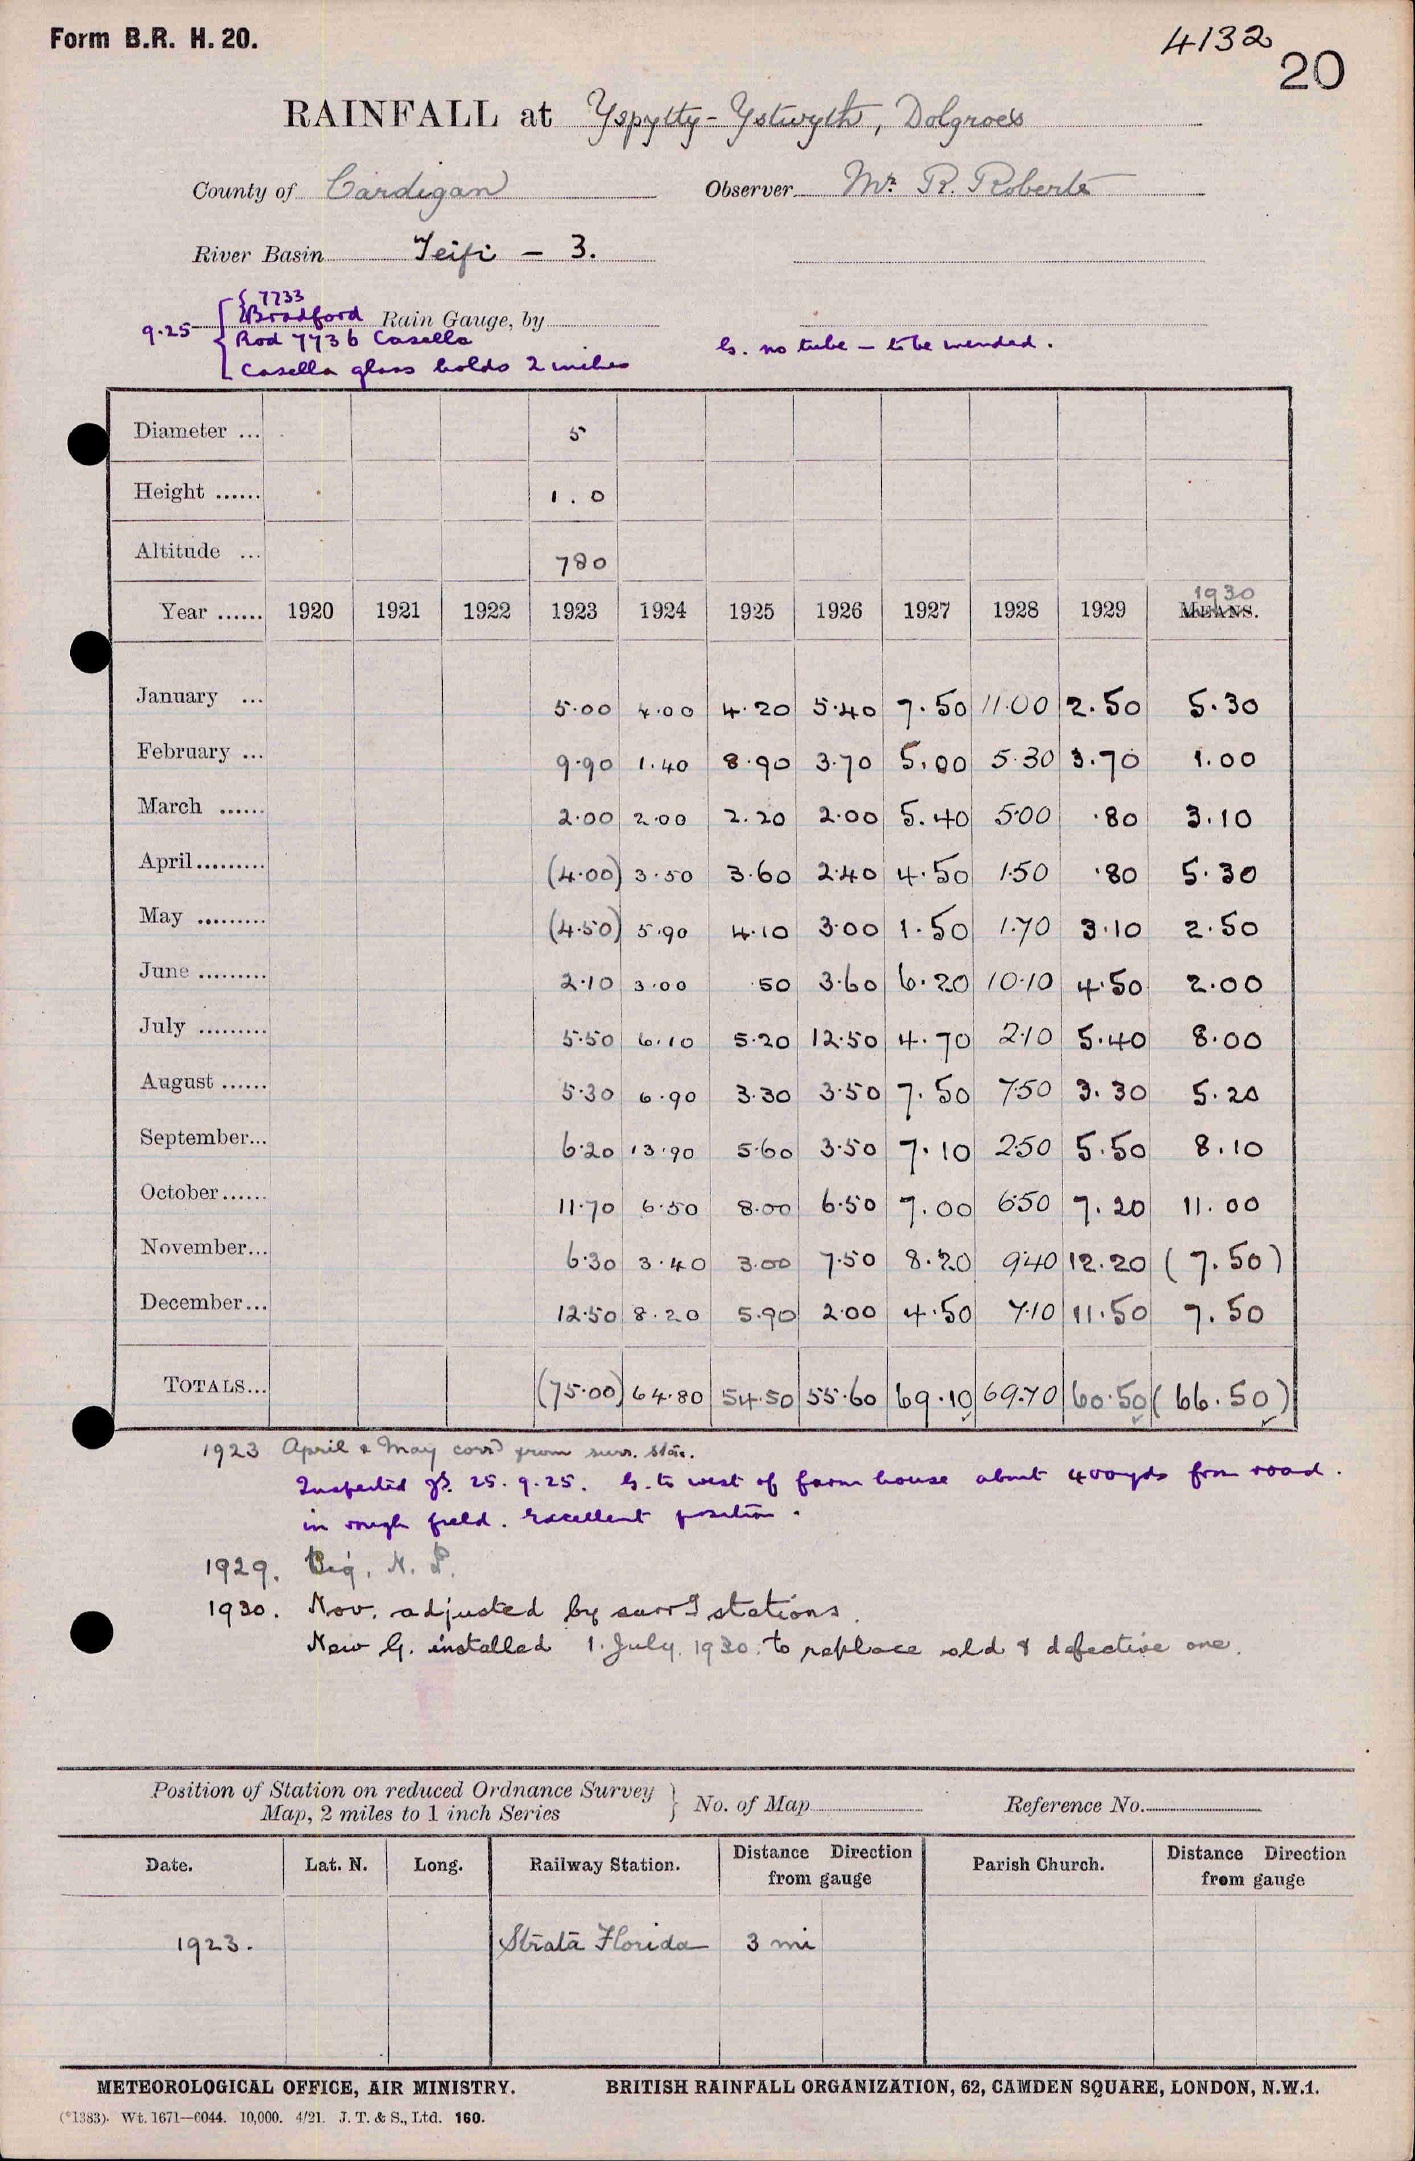 Form B.R. H. 20.
4132
20
RAINFALL at Yspytty-Ystwyth, Dolgroes
County of Cardigan Observer Mr. R. Roberts
River Basin Teifi - 3.
7733
9.25 Bradford Rain Gauge, by
Rod 7736 Casella G. no tube - to be mended.
Casella glass holds 2 inches
Diameter ... 5
Height ...... 1.0
Altitude ... 780
Year ...... 1920 1921 1922 1923 1924 1925 1926 1927 1928 1929 1930 MEANS.
January ... 5.00 4.00 4.20 5.40 7.50 11.00 2.50 5.30
February ... 9.90 1.40 8.90 3.70 5.00 5.30 3.70 1.00
March ...... 2.00 2.00 2.20 2.00 5.40 5.00 .80 3.10
April......... (4.00) 3.50 3.60 2.40 4.50 1.50 .80 5.30
May ......... (4.50) 5.90 4.10 3.00 1.50 1.70 3.10 2.50
June ......... 2.10 3.00 .50 3.60 6.20 10.10 4.50 2.00
July ......... 5.50 6.10 5.20 12.50 4.70 2.10 5.40 8.00
August ...... 5.30 6.90 3.30 3.50 7.50 7.50 3.30 5.20
September... 6.20 13.90 5.60 3.50 7.10 2.50 5.50 8.10
October...... 11.70 6.50 8.00 6.50 7.00 6.50 7.20 11.00
November... 6.30 3.40 3.00 7.50 8.20 9.40 12.20 (7.50)
December... 12.50 8.20 5.90 2.00 4.50 7.10 11.50 7.50
TOTALS... (75.00) 64.80 54.50 55.60 69.10 69.70 60.50 (66.50)
1923 April & May corrd from surr. stns.
Inspected 25.9.25. G. to west of farm house about 400yds from road.
in rough field. Excellent position.
1929.
1930. Nov. adjusted by surrg stations.
New G. installed 1. July. 1930. to replace old & defective one.
Position of Station on reduced Ordnance Survey
Map, 2 miles to 1 inch Series } No. of Map Reference No.
Date. Lat. N. Long. Railway Station. Distance Direction from gauge Parish Church. Distance Direction from gauge
1923. Strata Florida 3 mi
METEOROLOGICAL OFFICE, AIR MINISTRY. BRITISH RAINFALL ORGANIZATION, 62, CAMDEN SQUARE, LONDON, N.W.1.
(*1383). Wt. 1671—6044. 10,000. 4/21. J. T. & S., Ltd. 160.